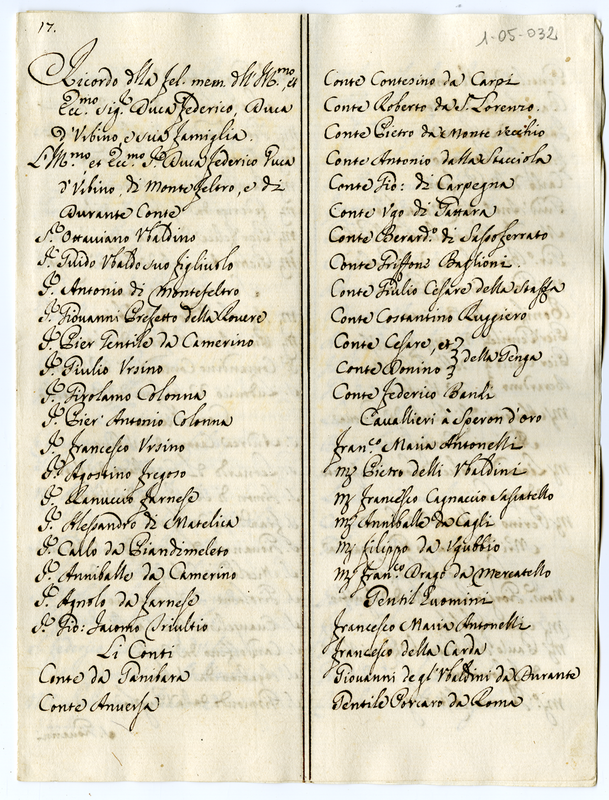 17.
1-05-032
Ricordo dlla fel. mem. dll' Ill.mo, et
Ecc.mo Sig.r Duca Federico, Duca
D'Urbino e sua famiglia.
L'Ill.mo et Ecc.mo S.r Duca Federico Duca
d'Urbino, di Montefeltro, e di
Durante Conte
S.r Ottaviano Ubaldino
S.r Guido Ubaldo suo figliuolo
S.r Antonio di Montefeltro
S.r Giovanni Prefetto della Rovere
S.r Pier Gentile da Camerino
S.r Giulio Ursino
S.r Girolamo Colonna
S.r Pier Antonio Colonna
S.r Francesco Ursino
S.r Agostino Fregoso
S.r Ranuccio Farnese
S.r Alessandro di Matelica
S.r Carlo da Piandimeleto
S.r Anniballe da Camerino
S.r Agnolo da Farnese
S.r Gio: Jacomo Triultio
Li Conti
Conte da Panibara
Conte Anversa
Conte Contesino da Carpi
Conte Roberto da S. Lorenzo.
Conte Pietro da Monte vecchio
Conte Antonio dalla Stacciola
Conte Gio: di Carpegna
Conte Ugo di Gattara
Conte Berard.o di Sassoferrato
Conte Griffone Baglioni
Conte Giulio Cesare della Staffa
Conte Costantino Ruggiero
Conte Cesare, et
Conte Honino } della Genga
Conte Federico Banli
Cavallieri à Speron d'oro
Fran.co Maria Antonelli
Mr Pietro delli Ubaldini
Mr Francesco Cagnaccio Sasatello
Mr Anniballe da Cagli
Mr Filippo da Ugubbio
Mr Fran.co Drago da Mercatello
Gentil'huomini
Francesco Maria Antonelli
Francesco della Carda
Giovanni degl'Ubaldini da Durante
Gentile Porcaro da Roma